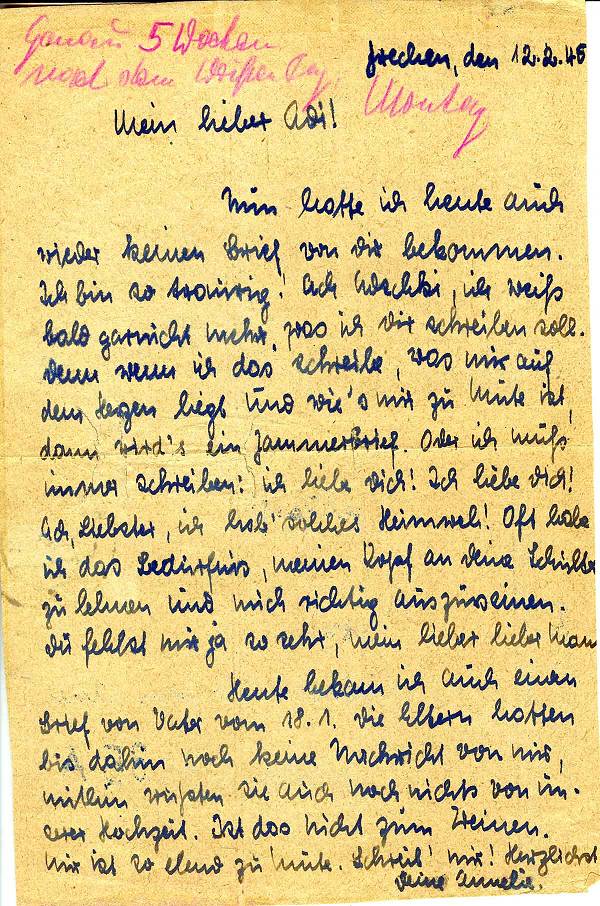 Genau 5 Wochen
nach dem Weißen Tag,
Frechen, den 12.2.45
Montag
Mein lieber Adi!
Nun hatte ich heute auch
wieder keinen Brief von Dir bekommen.
Ich bin so traurig! Ach Adschki, ich weiß
bald garnicht mehr, was ich Dir schreiben soll.
Denn wenn ich das schreibe, was mir auf
dem Herzen liegt und wie's mir zu Mute ist,
dann wird's ein Jammerbrief. Oder ich muß
immer schreiben: ich liebe Dich! Ich liebe Dich!
Ach, Liebster, ich hab' solches Heimweh! Oft habe
ich das Bedürfnis, meinen Kopf an Deine Schulter
zu lehnen und mich richtig auszuweinen.
Du fehlst mir ja so sehr, mein lieber lieber Mann
Heute bekam ich auch einen
Brief von Vater vom 18.1. Die Eltern hatten
bis dahin noch keine Nachricht von mir,
mithin wußten sie auch noch nichts von un-
serer Hochzeit. Ist das nicht zum Weinen.
Mir ist so elend zu Mute. Schreib' mir! Herzlichst
Deine Annelie.